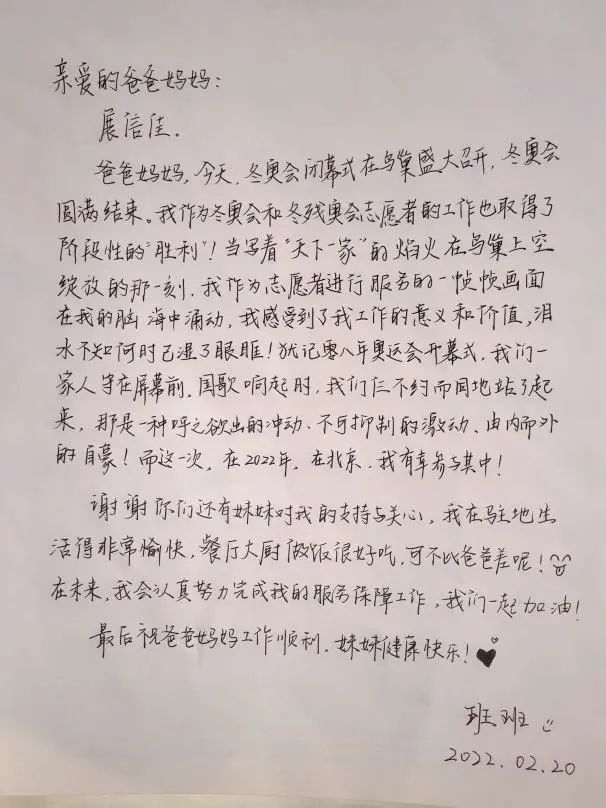 亲爱的爸爸妈妈：
展信佳.
爸爸妈妈，今天，冬奥会闭幕式在鸟巢盛大召开，冬奥会
圆满结束。我作为冬奥会和冬残奥会志愿者的工作也取得了
阶段性的“胜利”！当写着“天下一家”的焰火在鸟巢上空
绽放的那一刻，我作为志愿者进行服务的一帧帧画面
在我的脑海中涌动，我感受到了我工作的意义和价值，泪
水不知何时已湿了眼眶！犹记零八年奥运会开幕式，我们一
家人守在屏幕前，国歌响起时，我们仨不约而同地站了起
来，那是一种呼之欲出的冲动、不可抑制的激动、由内而外
的自豪！而这一次，在2022年，在北京，我有幸参与其中！
谢谢你们还有妹妹对我的支持与关心，我在驻地生
活得非常愉快，餐厅大厨做饭很好吃，可不比爸爸差呢！
在未来，我会认真努力完成我的服务保障工作，我们一起加油！
最后祝爸爸妈妈工作顺利，妹妹健康快乐！
班班
2022.02.20